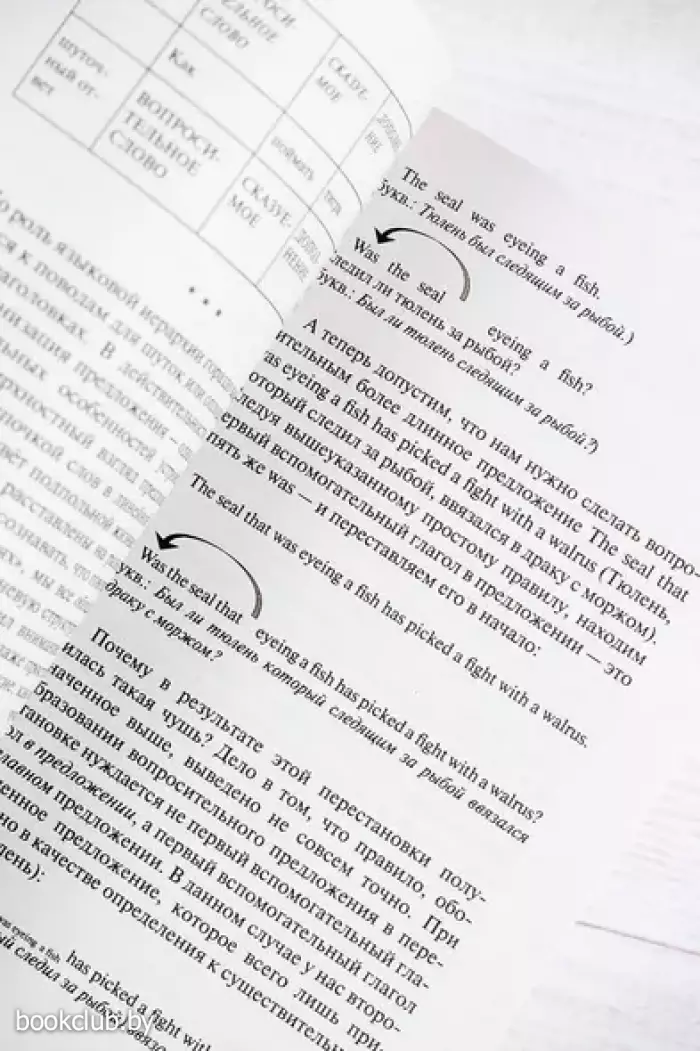 ВОПРОСИ-
ТЕЛЬНОЕ
СЛОВО
СКАЗУЕ-
МОЕ
ДОПОЛ-
НЕНИЕ
шуточ-
ный от-
вет
Как
поймать
ВОПРОСИ-
ТЕЛЬНОЕ
СЛОВО
СКАЗУЕ-
МОЕ
ДОПОЛ-
НЕНИЕ
• • •
роль языковой иерархии
к поводам для шуток или
В действительно
предложения —
особенностей
взгляд
слов в
подпольной
расставлены
The seal was eyeing a fish.
букв.: Тюлень был следящим за рыбой.)
Was the seal eyeing a fish?
ледил ли тюлень за рыбой?
букв.: Был ли тюлень следящим за рыбой?)
А теперь допустим, что нам нужно сделать вопро-
ительным более длинное предложение The seal that
as eyeing a fish has picked a fight with a walrus (Тюлень,
оторый следил за рыбой, ввязался в драку с моржом).
ледуя вышеуказанному простому правилу, находим
ервый вспомогательный глагол в предложении — это
пять же was — и переставляем его в начало:
The seal that was eyeing a fish has picked a fight with a walrus.
Was the seal that eyeing a fish has picked a fight with a walrus?
укв.: Был ли тюлень который следящим за рыбой ввязался
драку с моржом?
Почему в результате этой перестановки полу-
илась такая чушь? Дело в том, что правило, обо-
наченное выше, выведено не совсем точно. При
бразовании вопросительного предложения в пере-
тановке нуждается не первый вспомогательный гла-
ол в предложении, а первый вспомогательный глагол
главном предложении. В данном случае у нас второ-
енное предложение, которое всего лишь при-
но в качестве определения к существительн
лень):
was eyeing a fish, has picked a fight with
ый следил за рыбой, ввяза
bookclub.by